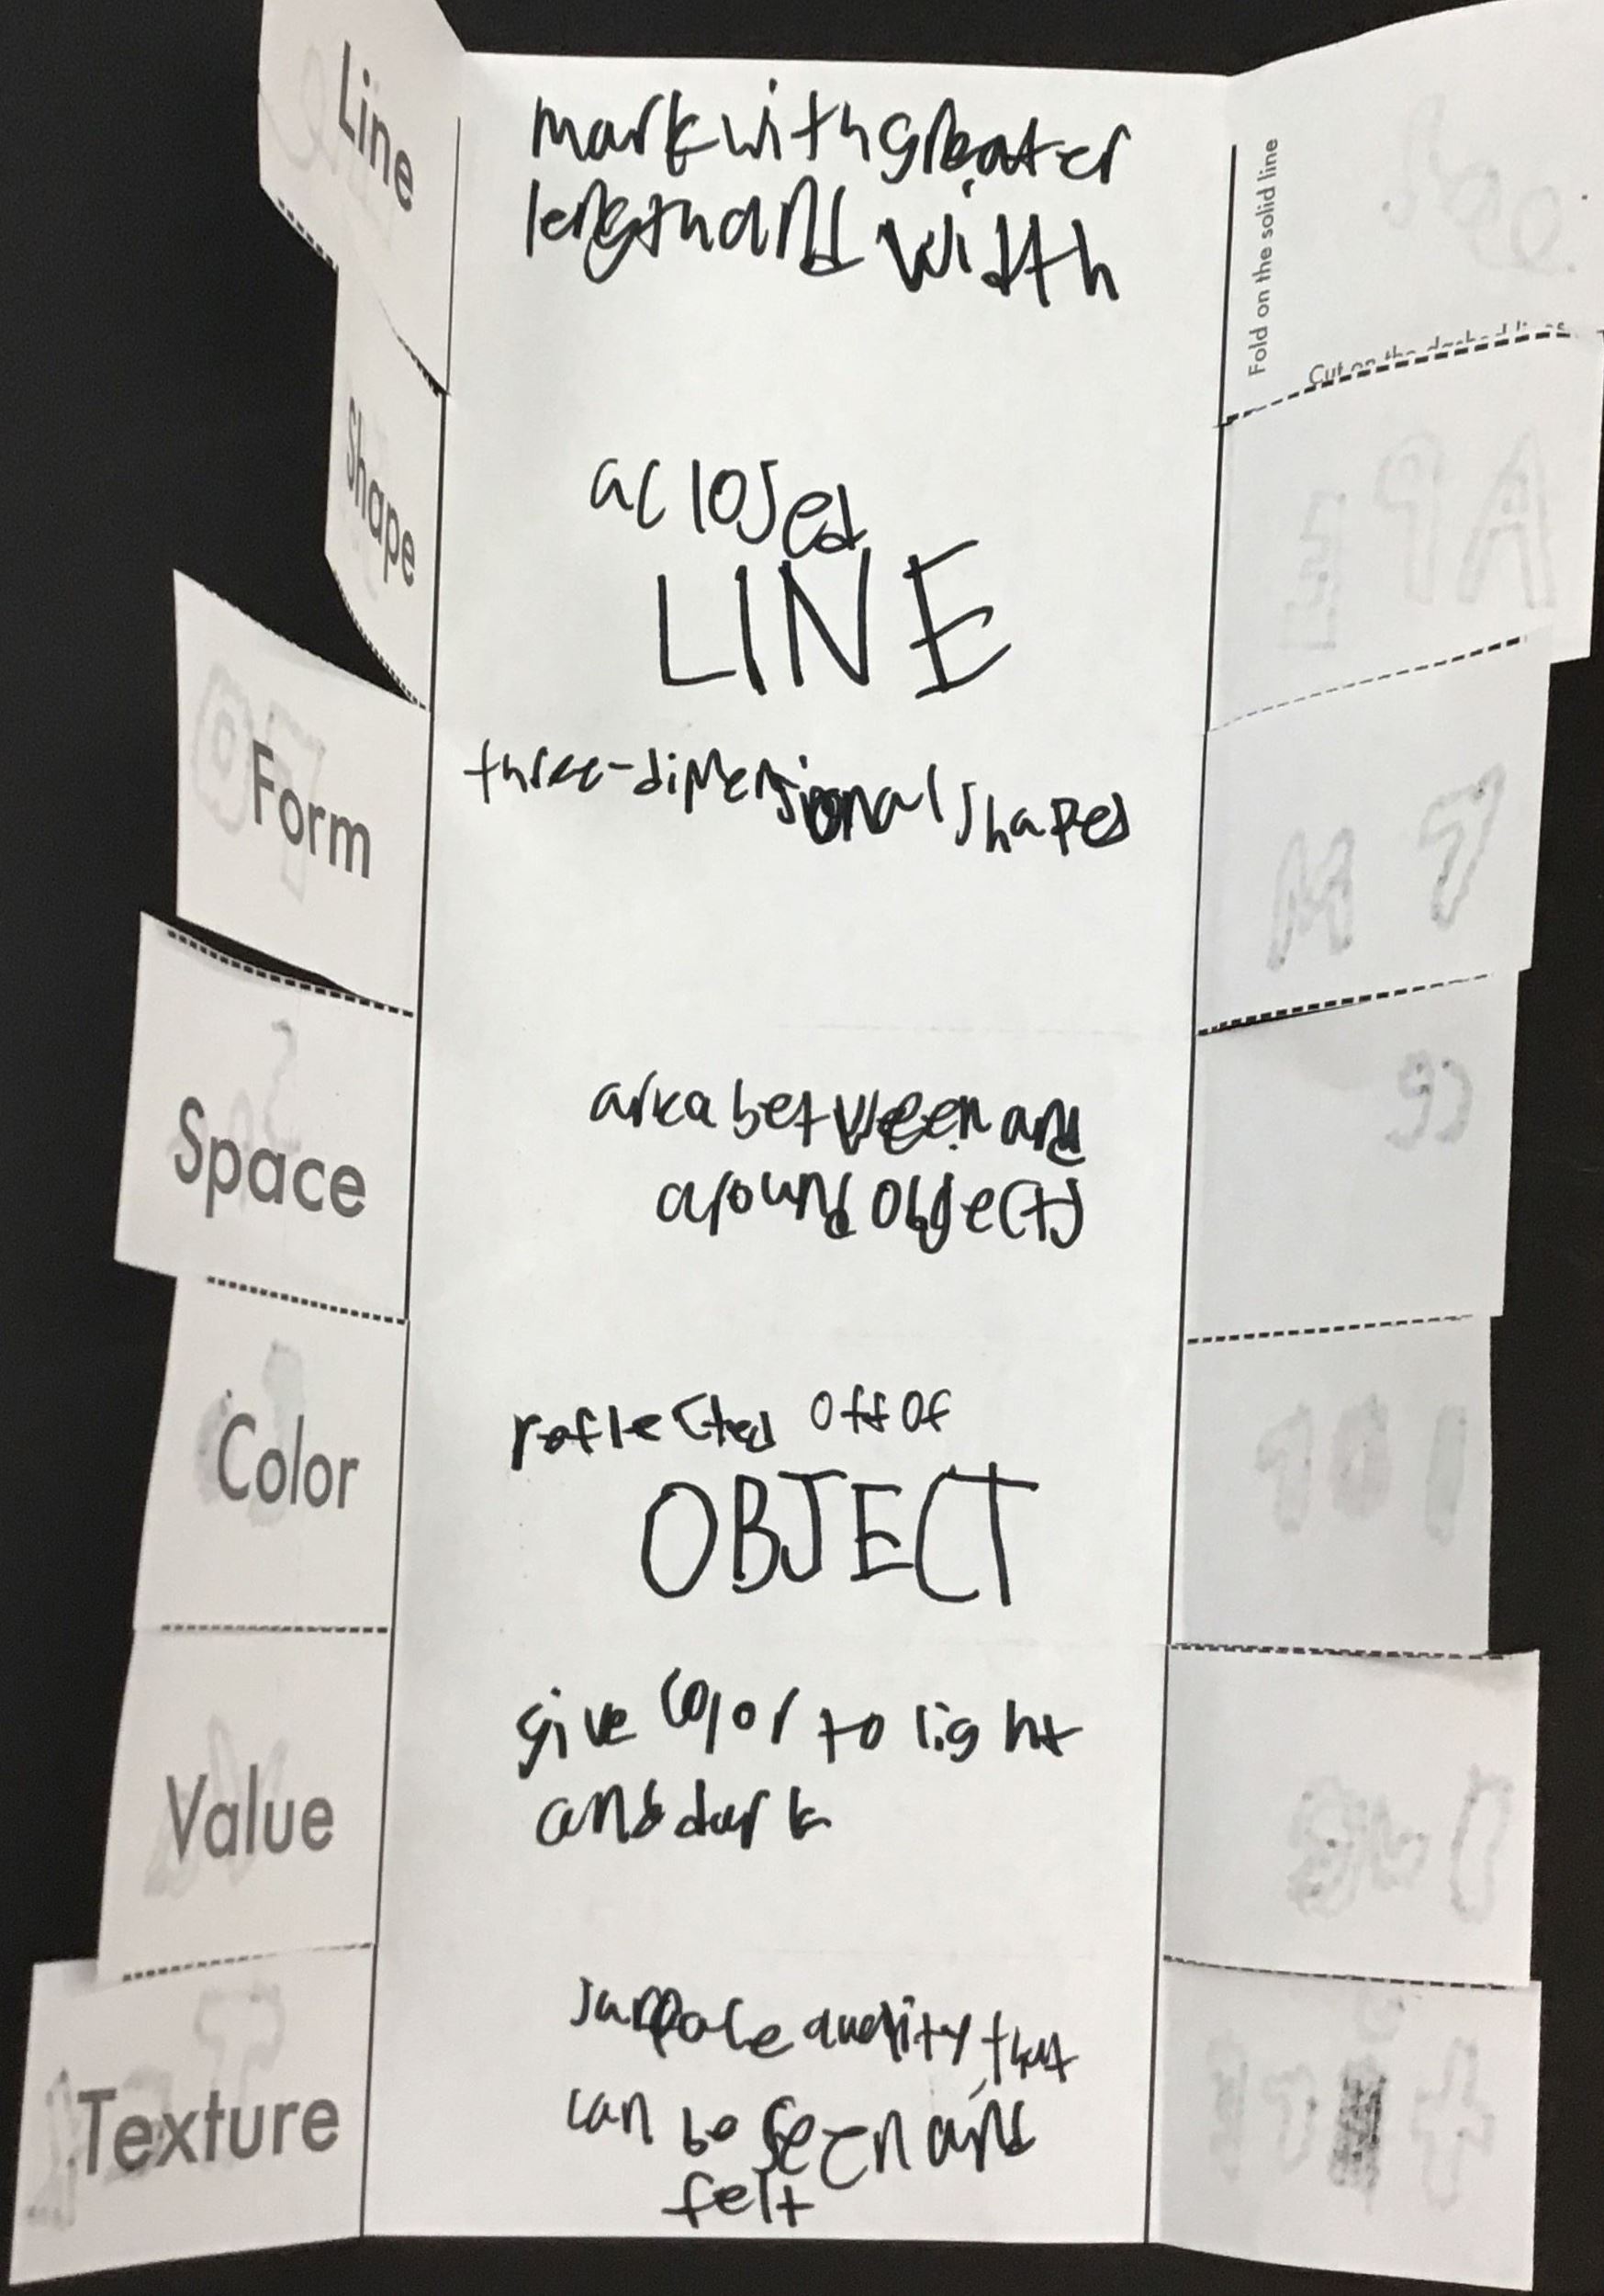 Line
mark with greater
length and width
Fold on the solid line
Cut on the dashed lines
Shape
a closed
LINE
Form
three-dimensional shapes
Space
area between and
around objects
Color
reflected off of
OBJECT
Value
give color to light
and dark
Texture
surface quality that
can be seen and
felt